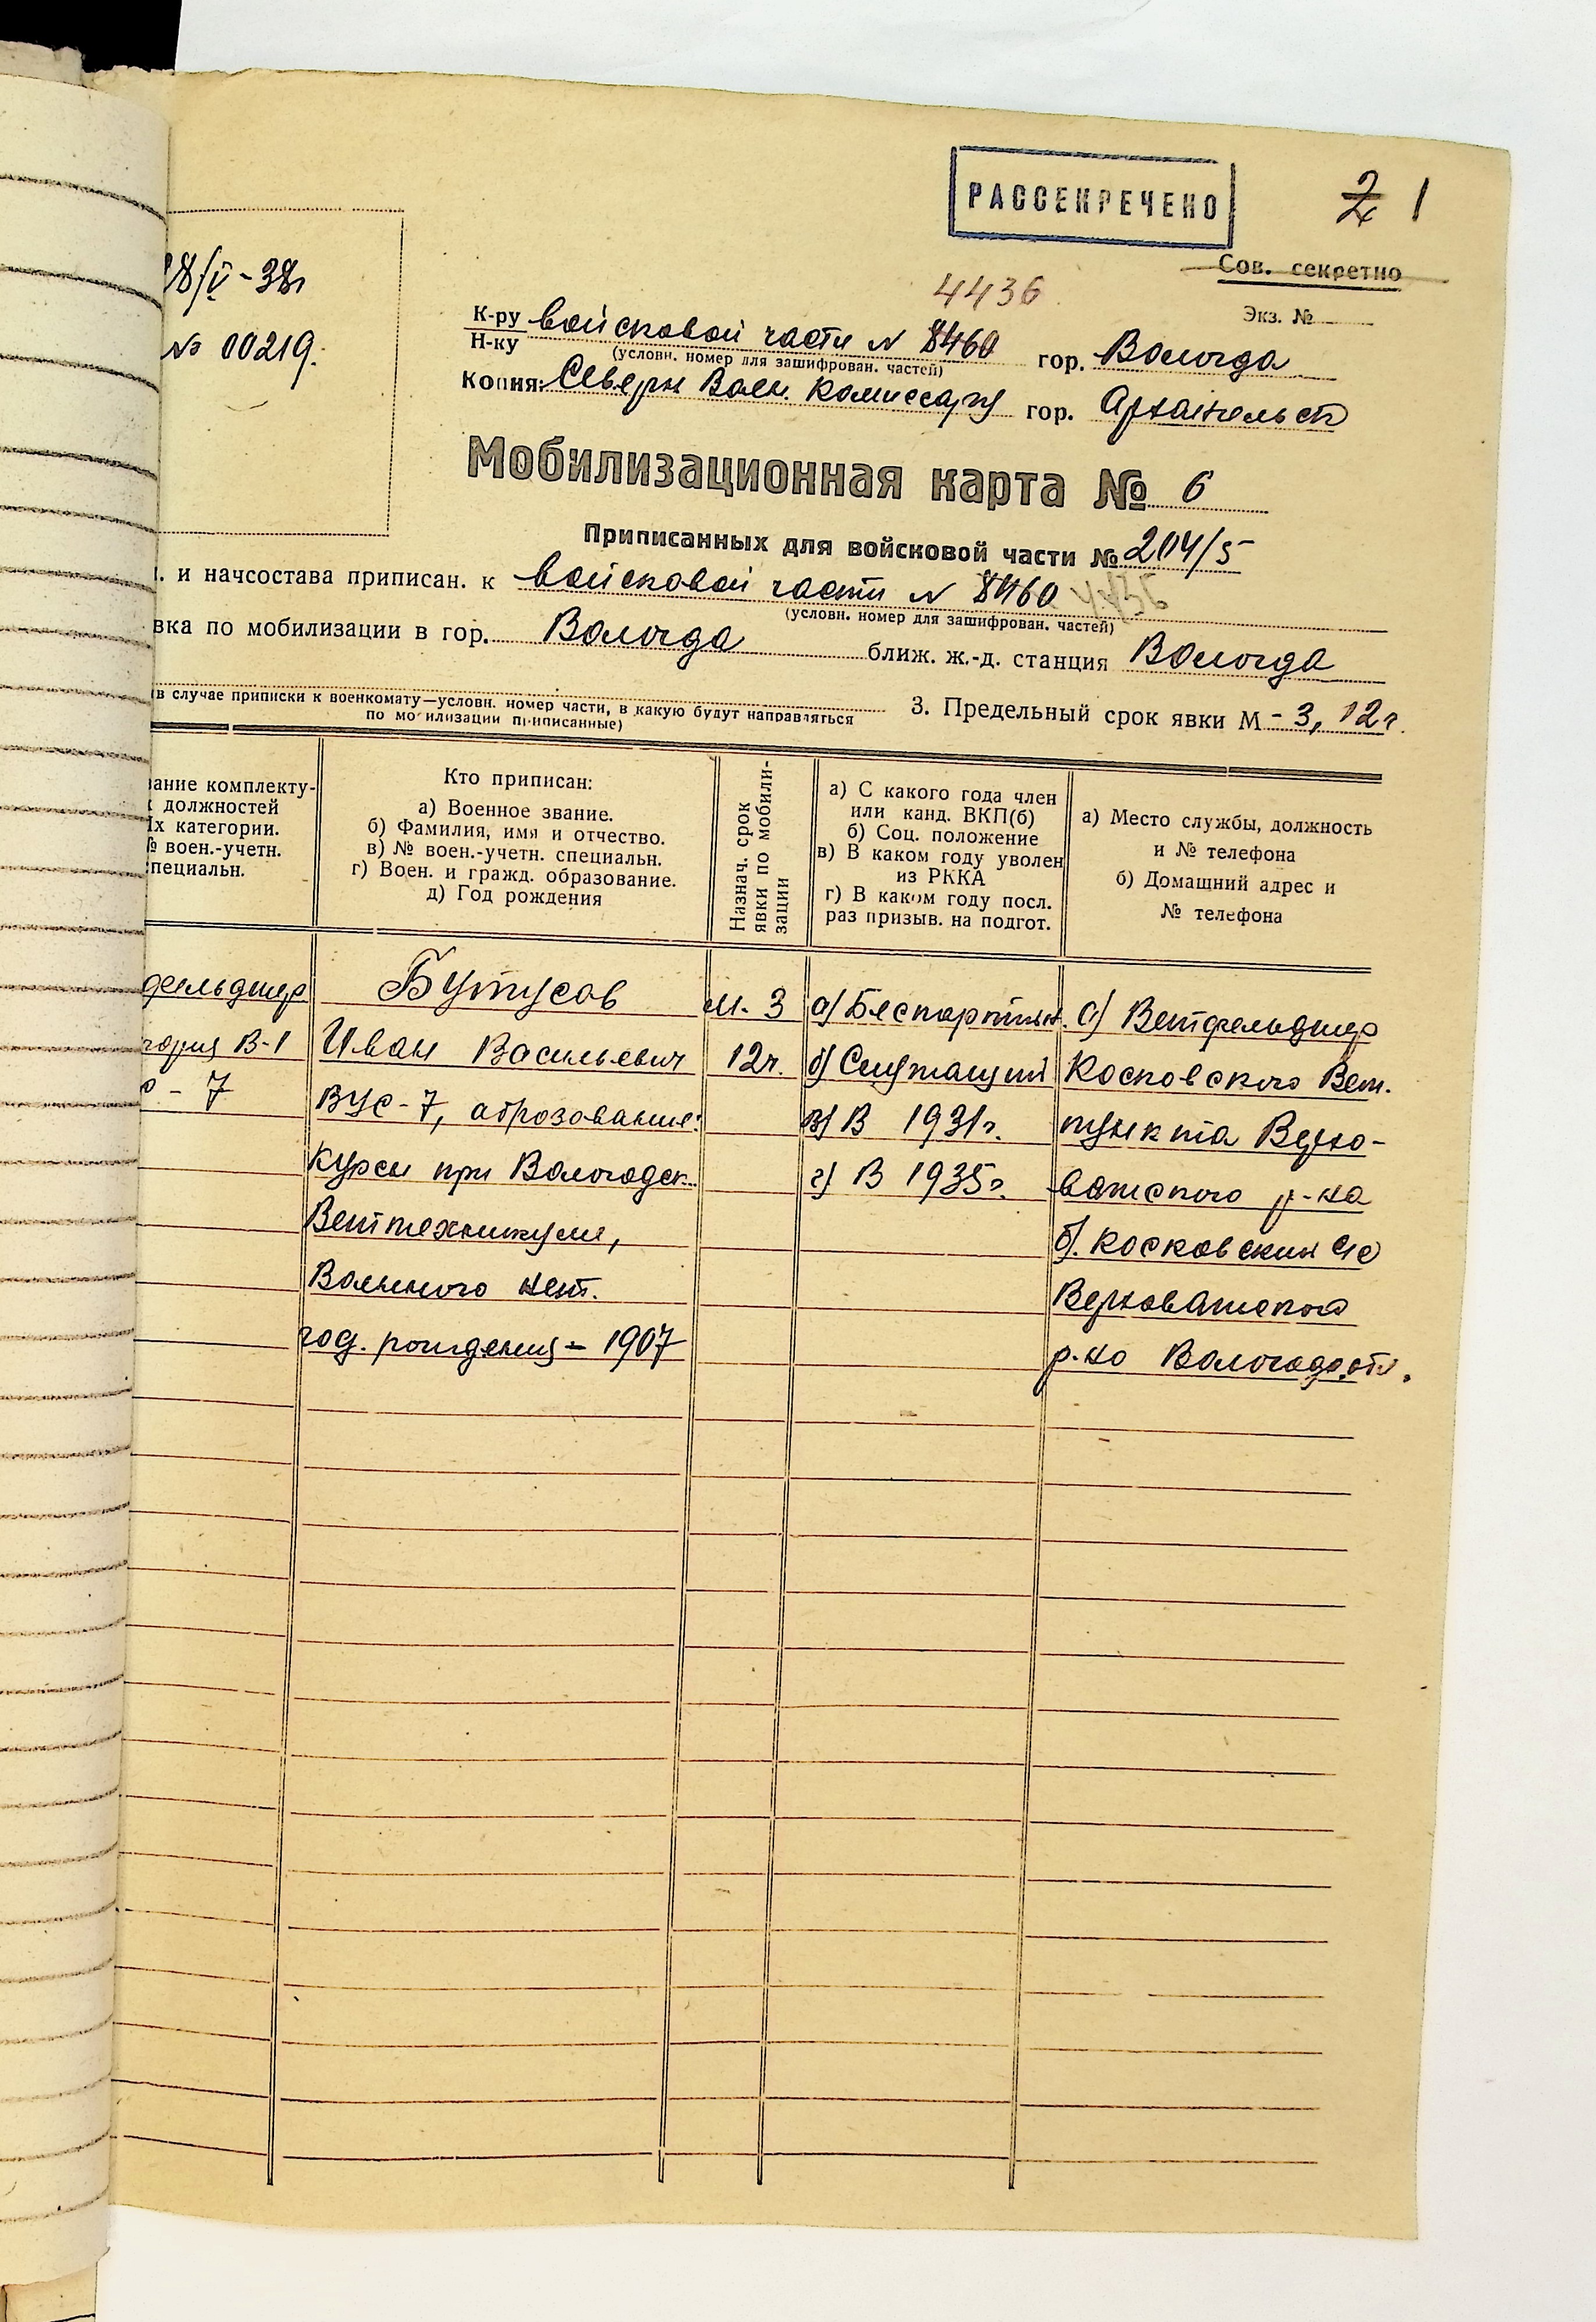 РАССЕКРЕЧЕНО
2 1
Сов. секретно
Экз. №
28/V-38г
№ 00219.
4436
К-ру войсковой части N 8460 гор. Вологда
Н-ку
(условн. номер для зашифрован. частей)
Копия: Северн Воен. Комиссару гор. Архангельск
Мобилизационная карта № 6
Приписанных для войсковой части № 204/5
. и начсостава приписан. к войсковой части N 8460 4436
(условн. номер для зашифрован. частей)
вка по мобилизации в гор. Вологда ближ. ж.-д. станция Вологда
(в случае приписки к военкомату—условн. номер части, в какую будут направляться
по мобилизации приписанные)
3. Предельный срок явки М - 3, 12ч.
ание комплекту-
должностей
их категории.
№ воен.-учетн.
специальн.
Кто приписан:
а) Военное звание.
б) Фамилия, имя и отчество.
в) № воен.-учетн. специальн.
г) Воен. и гражд. образование.
д) Год рождения
Назнач. срок
явки по мобили-
зации
а) С какого года член
или канд. ВКП(б)
б) Соц. положение
в) В каком году уволен
из РККА
г) В каком году посл.
раз призыв. на подгот.
а) Место службы, должность
и № телефона
б) Домашний адрес и
№ телефона
фельдшер
гория В-1
с - 7
Бутусов
Иван Васильевич
ВУС-7, образование:
курсы при Вологодск.
Веттехникуме,
Военного нет.
год. рождения - 1907
М. 3
12ч.
а) Беспартийн.
б) Служащий
в) В 1931г.
г) В 1935г.
а) Ветфельдшер
Косковского Вет.
пункта Верхо-
важского р-на
б). Косковский с/с
Верховажского
р-на Вологодс. обл.